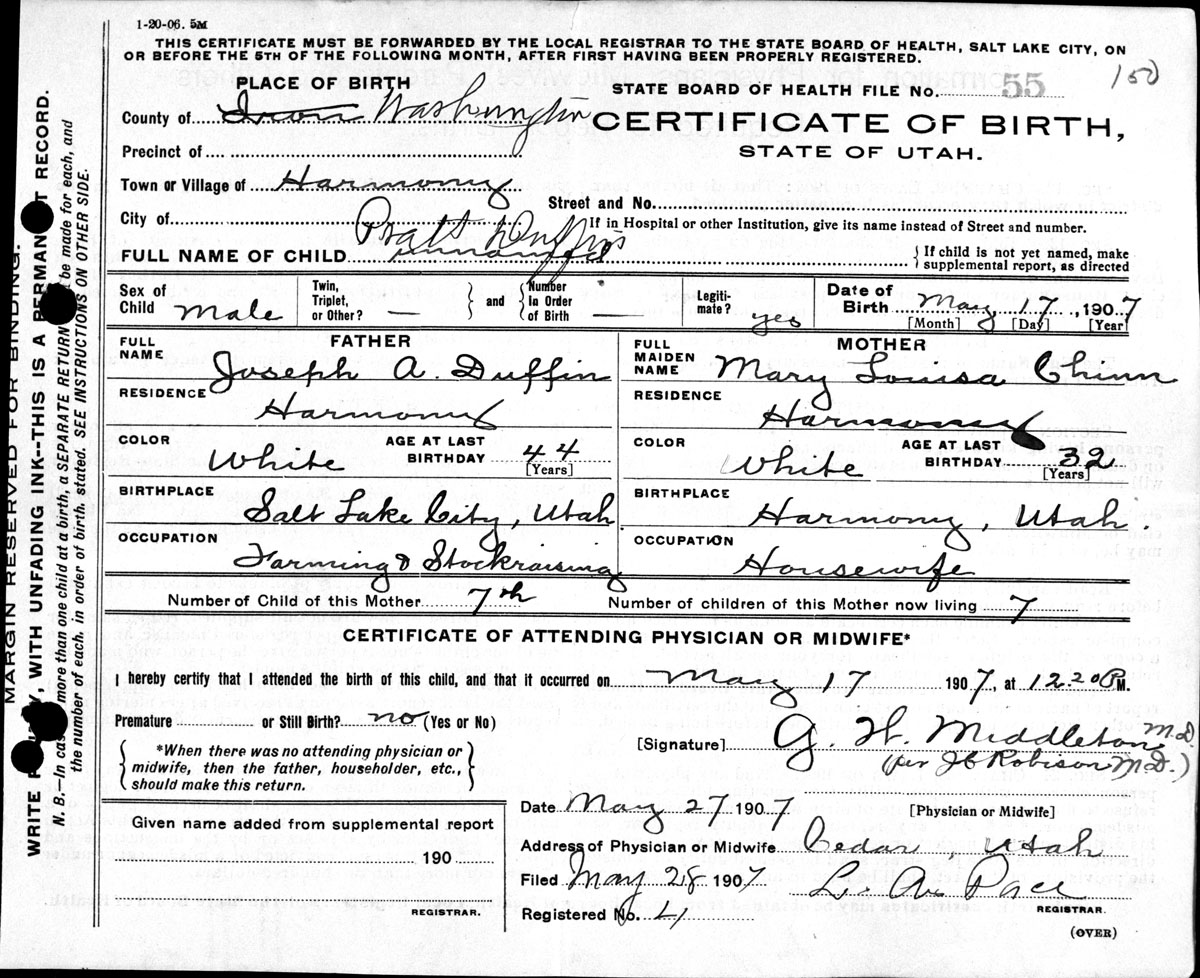 1-20-06. 5M
THIS CERTIFICATE MUST BE FORWARDED BY THE LOCAL REGISTRAR TO THE STATE BOARD OF HEALTH, SALT LAKE CITY, ON
OR BEFORE THE 5TH OF THE FOLLOWING MONTH, AFTER FIRST HAVING BEEN PROPERLY REGISTERED.
PLACE OF BIRTH
STATE BOARD OF HEALTH FILE No. 55 150
County of Iron Washington
CERTIFICATE OF BIRTH,
STATE OF UTAH.
Precinct of
Town or Village of Harmony
Street and No.
City of
If in Hospital or other Institution, give its name instead of Street and number.
Pratt Duffin
FULL NAME OF CHILD unnamed
{If child is not yet named, make
supplemental report, as directed
Sex of Child Male
Twin, Triplet, or Other? —
} and {
Number In Order of Birth —
Legiti-mate? yes
Date of Birth May 17, 1907
[Month] [Day] [Year]
FATHER
FULL NAME Joseph A. Duffin
RESIDENCE Harmony
COLOR White
AGE AT LAST BIRTHDAY 44
[Years]
BIRTHPLACE Salt Lake City, Utah
OCCUPATION Farming & Stockraising
MOTHER
FULL MAIDEN NAME Mary Louisa Chinn
RESIDENCE Harmony
COLOR White
AGE AT LAST BIRTHDAY 32
[Years]
BIRTHPLACE Harmony, Utah.
OCCUPATION Housewife
Number of Child of this Mother 7th
Number of children of this Mother now living 7
CERTIFICATE OF ATTENDING PHYSICIAN OR MIDWIFE*
I hereby certify that I attended the birth of this child, and that it occurred on May 17 1907, at 12.20 P M.
Premature or Still Birth? no (Yes or No)
{*When there was no attending physician or
midwife, then the father, householder, etc.,
should make this return.}
[Signature] G. W. Middleton M.D.
(per J C Robison M.D.)
[Physician or Midwife]
Date May 27 1907
Address of Physician or Midwife Cedar, Utah
Filed May 28 1907
L. A. Pace
REGISTRAR.
Registered No. 41
(OVER)
Given name added from supplemental report
190
REGISTRAR.
MARGIN RESERVED FOR BINDING.
WRITE , WITH UNFADING INK--THIS IS A PERMANENT RECORD.
N. B.—In case more than one child at a birth, a SEPARATE RETURN be made for each, and
the number of each, in order of birth, stated. SEE INSTRUCTIONS ON OTHER SIDE.